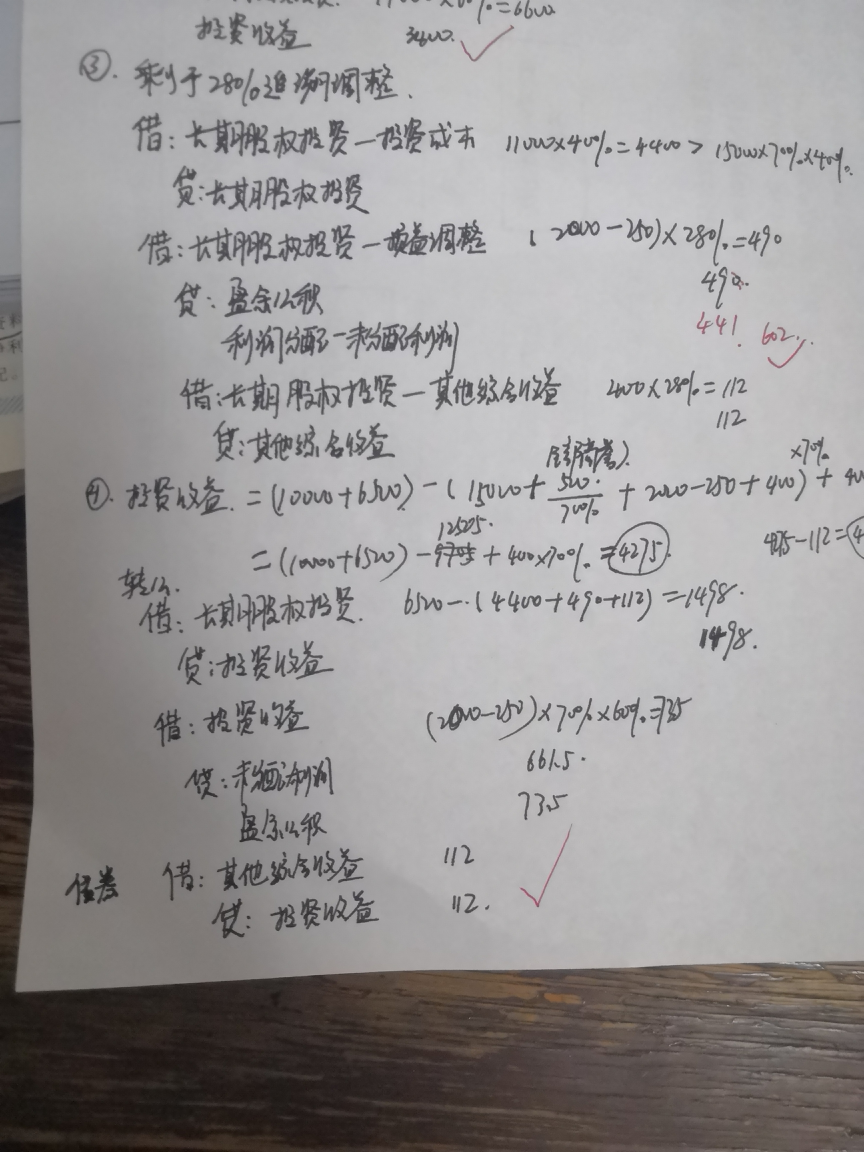 ×60%=6600
投资收益 3400.
③. 剩于28%追溯调整.
借：长期股权投资—投资成本 11000×40%=4400> 15000×70%×40%.
贷：长期股权投资
借：长期股权投资—损益调整 (2000-250)×28%=490
贷：盈余公积 49
利润分配—未分配利润 441. 602.
借：长期股权投资—其他综合收益 400×28%=112
贷：其他综合收益 112
④. 投资收益 =(10000+6500)-(15000+ 500/70% +2000-250+400)×70% +
=(10000+6520)- 12525. +400×70%=4275. 4275-112=
转公.
借：长期股权投资. 6520-(4400+490+112)=1498.
贷：投资收益 1498.
借：投资收益 (2000-250)×70%×60%=735
贷：未分配利润 661.5.
盈余公积 73.5
借：其他综合收益 112
贷：投资收益 112.